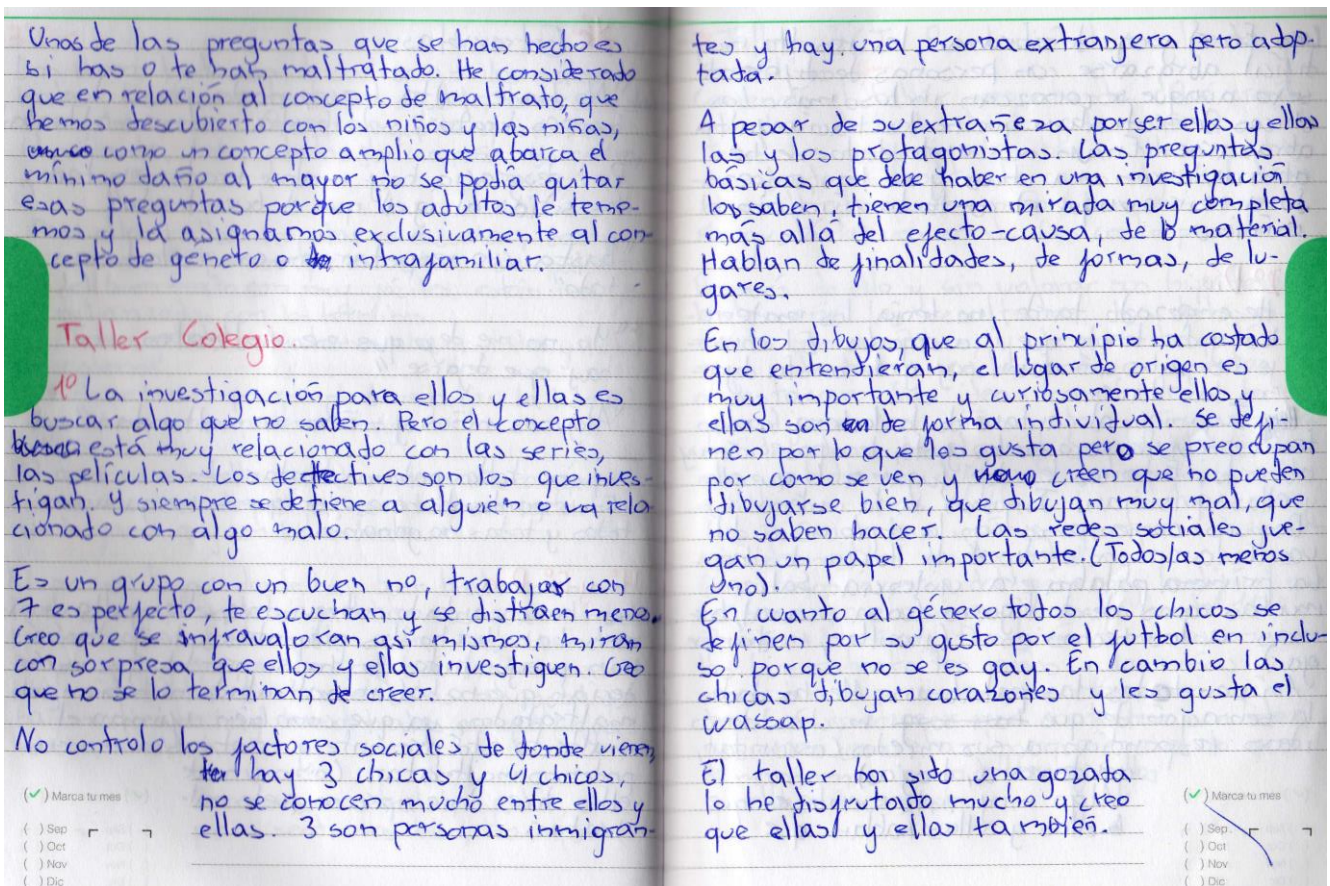 Unas de las preguntas que se han hecho es
si has o te han maltratado. He considerado
que en relación al concepto de maltrato, que
hemos descubierto con los niños y las niñas,
como un concepto amplio que abarca el
mínimo daño al mayor no se podía quitar
esas preguntas porque los adultos le teme-
mos y la asignamos exclusivamente al con-
cepto de género o intrafamiliar.
Taller Colegio.
1º La investigación para ellos y ellas es
buscar algo que no saben. Pero el concepto
está muy relacionado con las series,
las películas. Los detectives son los que inves-
tigan. Y siempre se detiene a alguien o va rela
cionado con algo malo.
Es un grupo con un buen nº, trabajar con
7 es perfecto, te escuchan y se distraen menos.
Creo que se infravaloran así mismos, miran
con sorpresa que ellos y ellas investiguen. Creo
que no se lo terminan de creer.
No controlo los factores sociales de donde vienen,
hay 3 chicas y 4 chicos,
no se conocen mucho entre ellos y
ellas. 3 son personas inmigran-
(✓) Marca tu mes
( ) Sep
( ) Oct
( ) Nov
( ) Dic
tes y hay una persona extranjera pero adop-
tada.
A pesar de su extrañeza por ser ellos y ellas
las y los protagonistas. Las preguntas
básicas que debe haber en una investigación
las saben, tienen una mirada muy completa
más allá del efecto-causa, de lo material.
Hablan de finalidades, de formas, de lu-
gares.
En los dibujos, que al principio ha costado
que entendieran, el lugar de origen es
muy importante y curiosamente ellos y
ellas son de forma individual. Se defi-
nen por lo que les gusta pero se preocupan
por como se ven y creen que no pueden
dibujarse bien, que dibujan muy mal, que
no saben hacer. Las redes sociales jue-
gan un papel importante. (Todos/as menos
uno).
En cuanto al género todos los chicos se
definen por su gusto por el futbol en inclu-
so porque no se es gay. En cambio las
chicas dibujan corazones y les gusta el
wassap.
El taller ha sido una gozada
lo he disfrutado mucho y creo
que ellas y ellas también.
(✓) Marca tu mes
( ) Sep
( ) Oct
( ) Nov
( ) Dic